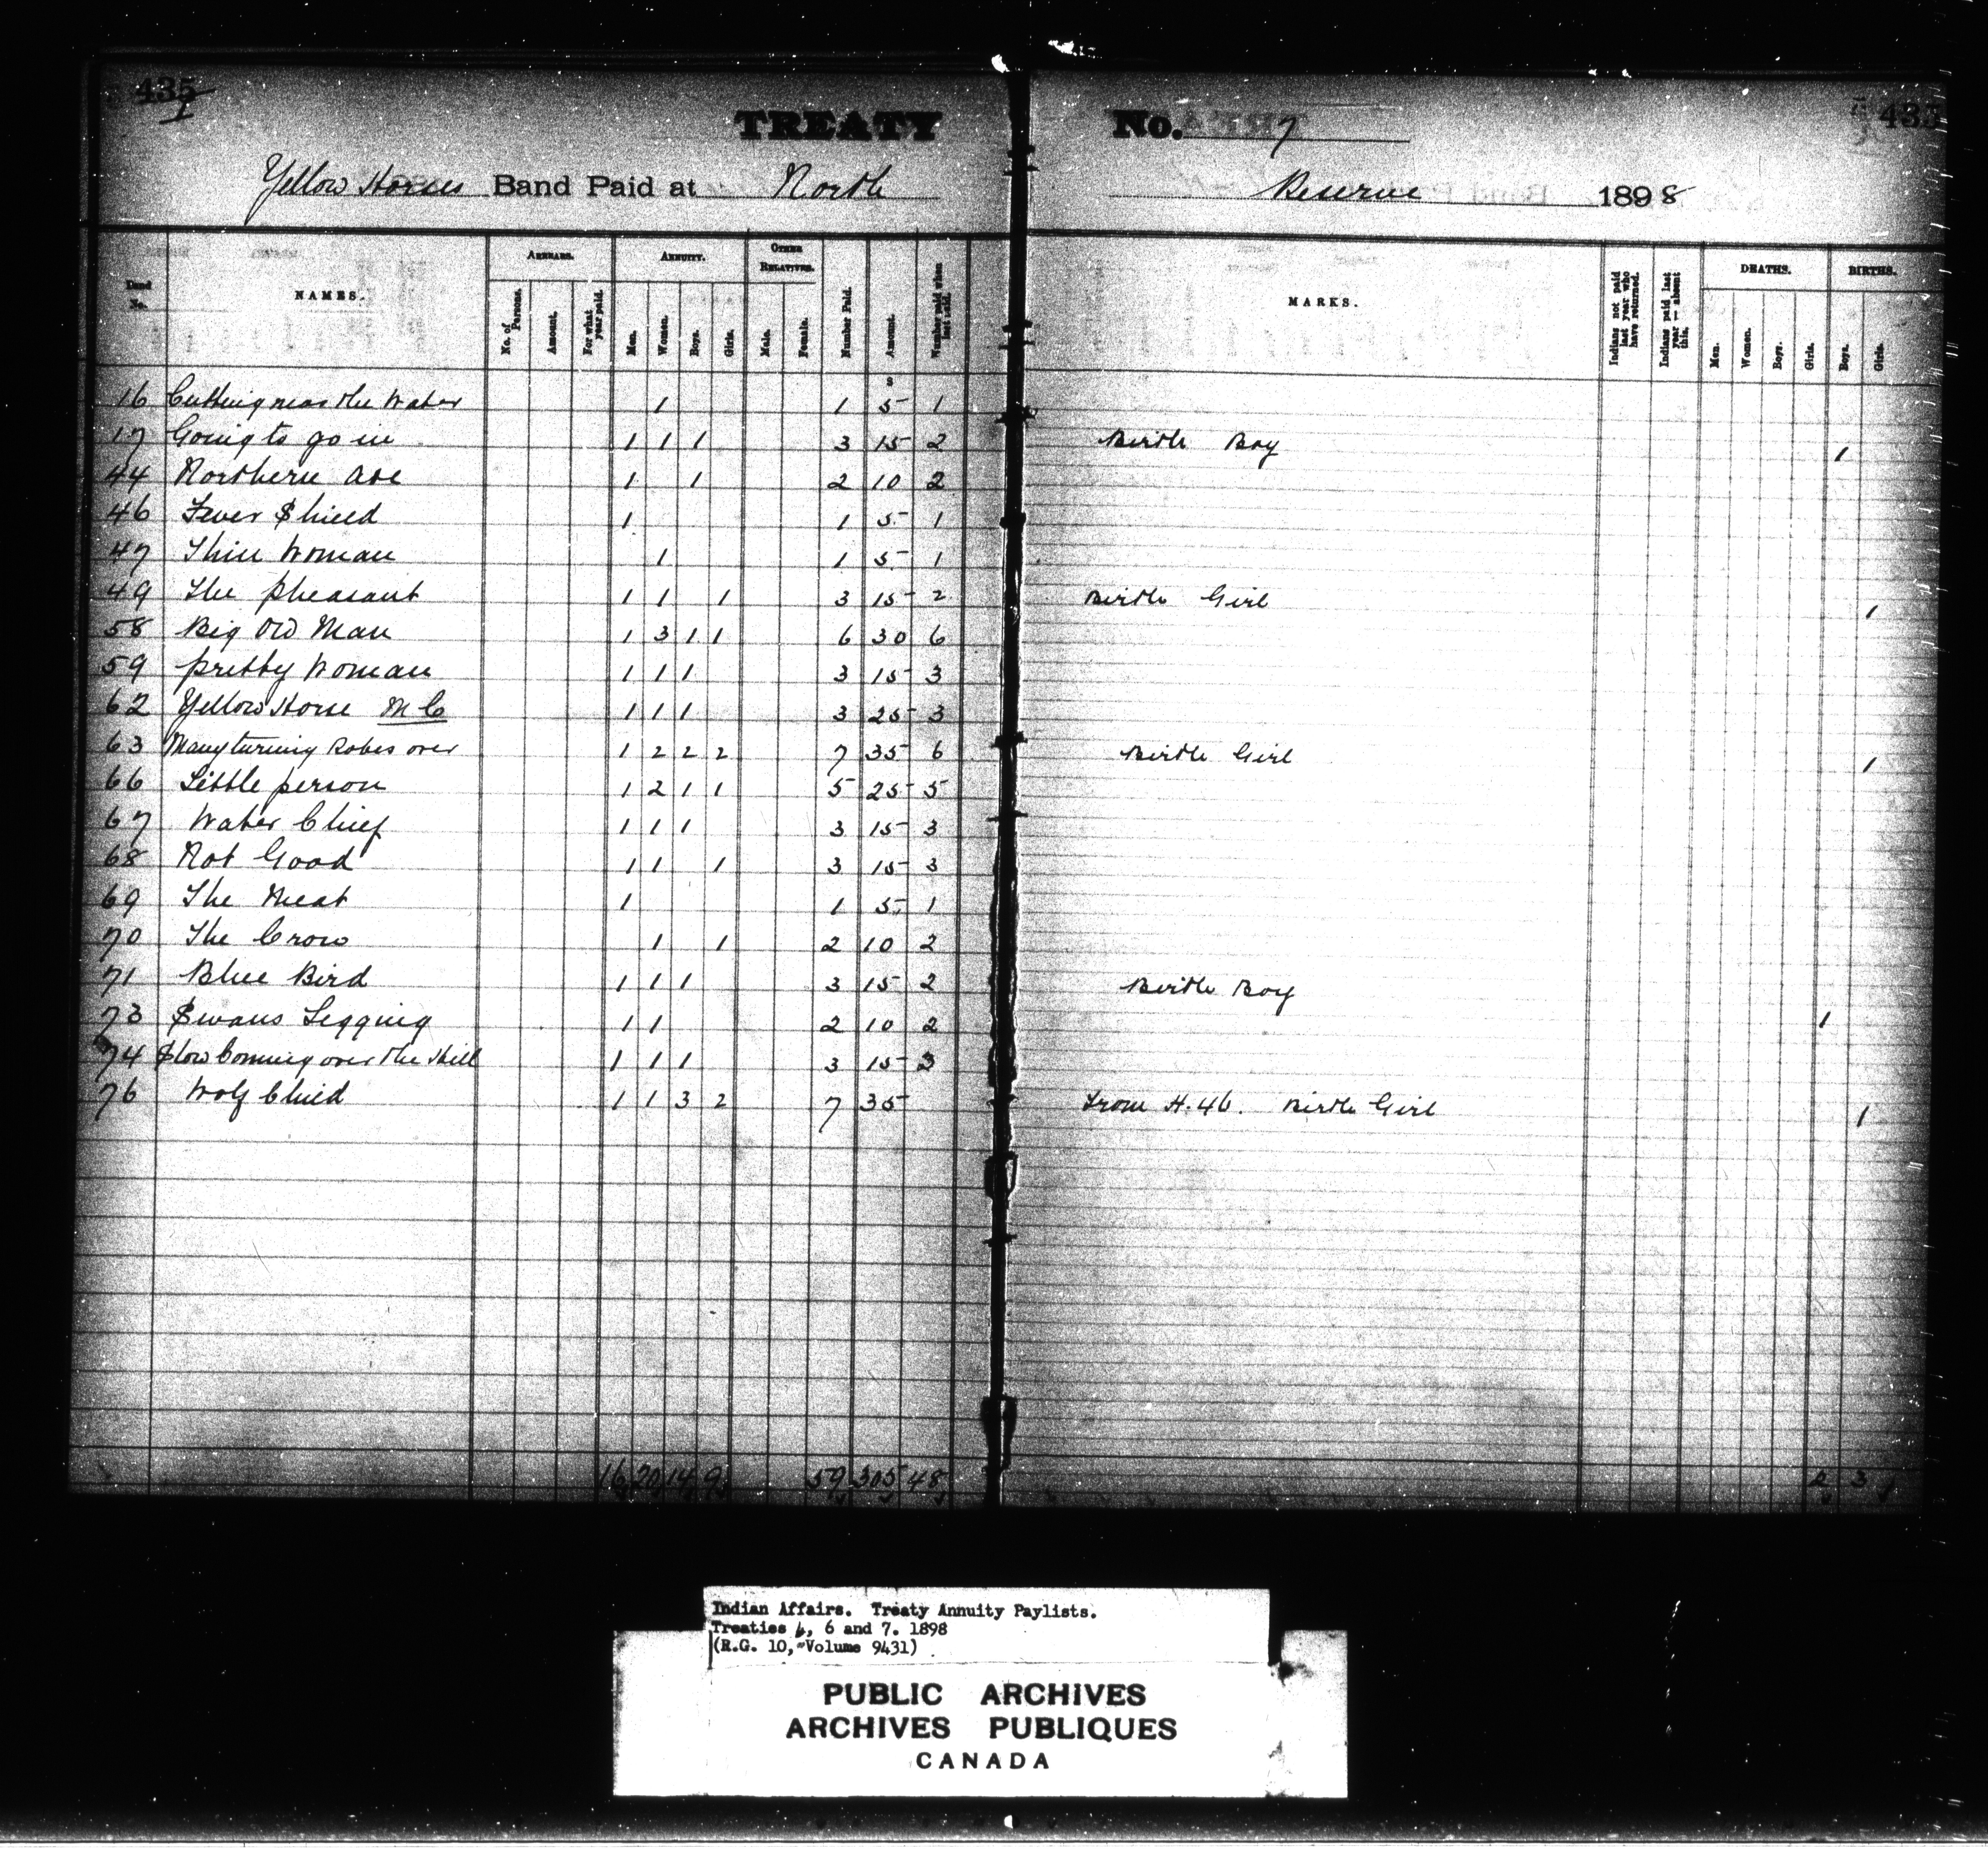 435 433
1
TREATY No. 7
Yellow Horses Band Paid at North Reserve 1898
Band No. NAMES. ARREARS. ANNUITY. OTHER RELATIVES. Number Paid. Amount. Number paid when last paid. MARKS. Indians not paid last year who have returned. Indians paid last year — absent this. DEATHS. BIRTHS.
No. of Persons. Amount. For what year paid. Men. Women. Boys. Girls. Male. Female. Men. Women. Boys. Girls. Boys. Girls.
$
16 Cutting near the Water 1 1 5 1
17 Going to go in 1 1 1 3 15 2 Birth Boy 1
44 Northern Axe 1 1 2 10 2
46 Fever Shield 1 1 5 1
47 Thin Woman 1 1 5 1
49 The Pheasant 1 1 1 3 15 2 Birth Girl 1
58 Big Old Man 1 3 1 1 6 30 6
59 Pretty Woman 1 1 1 3 15 3
62 Yellow Horse M C 1 1 1 3 25 3
63 Many turning Robes over 1 2 2 2 7 35 6 Birth Girl 1
66 Little person 1 2 1 1 5 25 5
67 Water Chief 1 1 1 3 15 3
68 Not Good 1 1 1 3 15 3
69 The Meat 1 1 5 1
70 The Crow 1 1 2 10 2
71 Blue Bird 1 1 1 3 15 2 Birth Boy 1
73 Swans Legging 1 1 2 10 2
74 Slow Coming over the Hill 1 1 1 3 15 3
76 Wolf Child 1 1 3 2 7 35 From H.46. Birth Girl 1
16 20 14 9 59 305 48 3
Indian Affairs. Treaty Annuity Paylists.
Treaties 4, 6 and 7. 1898
(R.G. 10, Volume 9431)
PUBLIC ARCHIVES
ARCHIVES PUBLIQUES
CANADA